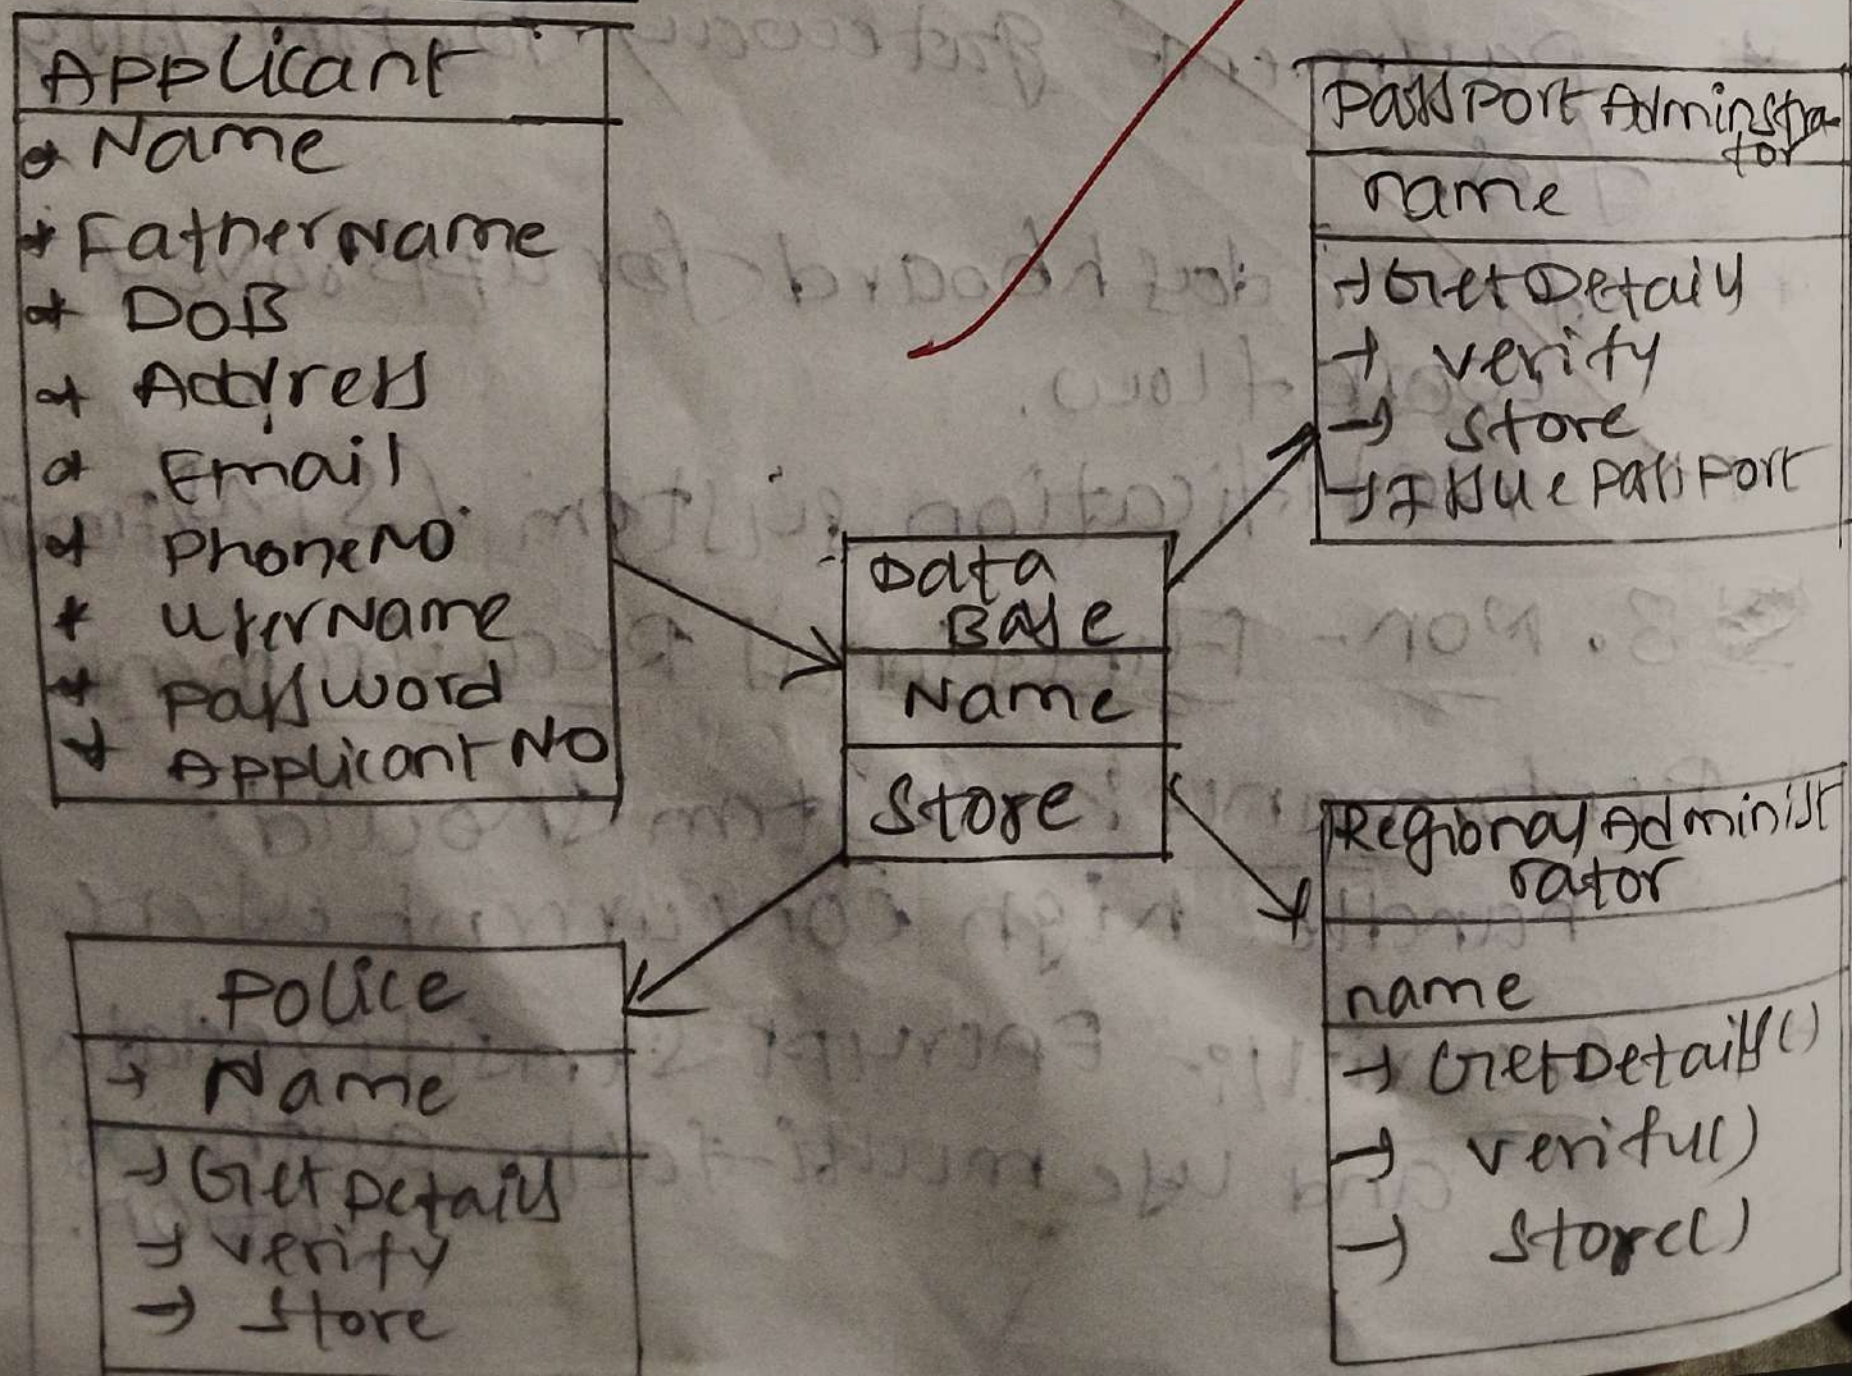 Applicant
Name
FatherName
DOB
Address
Email
PhoneNO
UserName
password
Applicant NO
Data
Base
Name
Store
Passport Adminstra-
tor
name
→ GetDetails
→ verify
→ store
→ Issue Passport
Regional Administ
rator
name
→ GetDetails()
→ verify()
→ store()
Police
→ Name
→ Get Details
→ verify
→ store